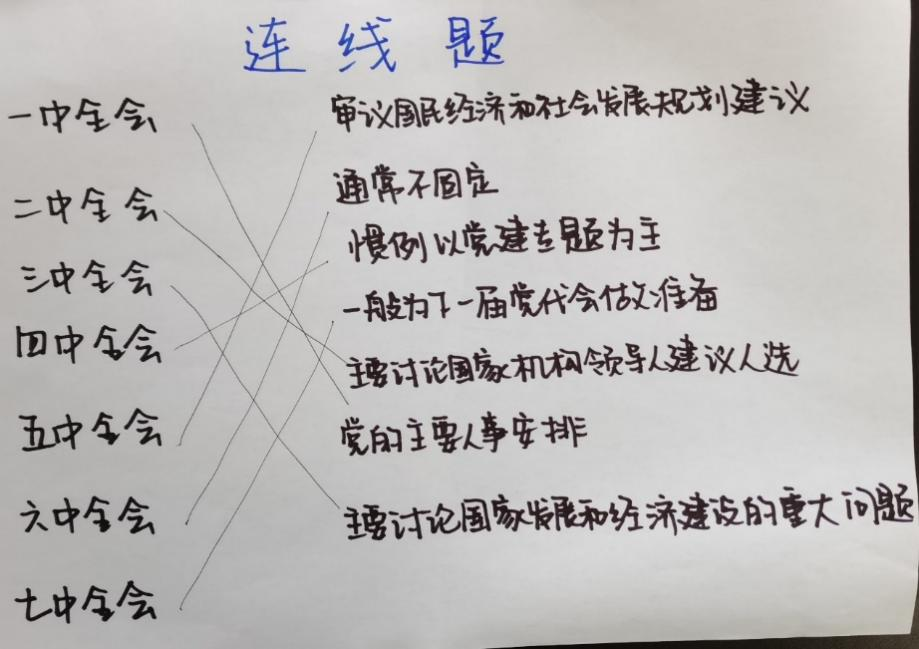 连线题
一中全会
审议国民经济和社会发展规划建议
二中全会
通常不固定
三中全会
惯例以党建专题为主
四中全会
一般为下一届党代会做准备
五中全会
主要讨论国家机构领导人建议人选
六中全会
党的主要人事安排
七中全会
主要讨论国家发展和经济建设的重大问题